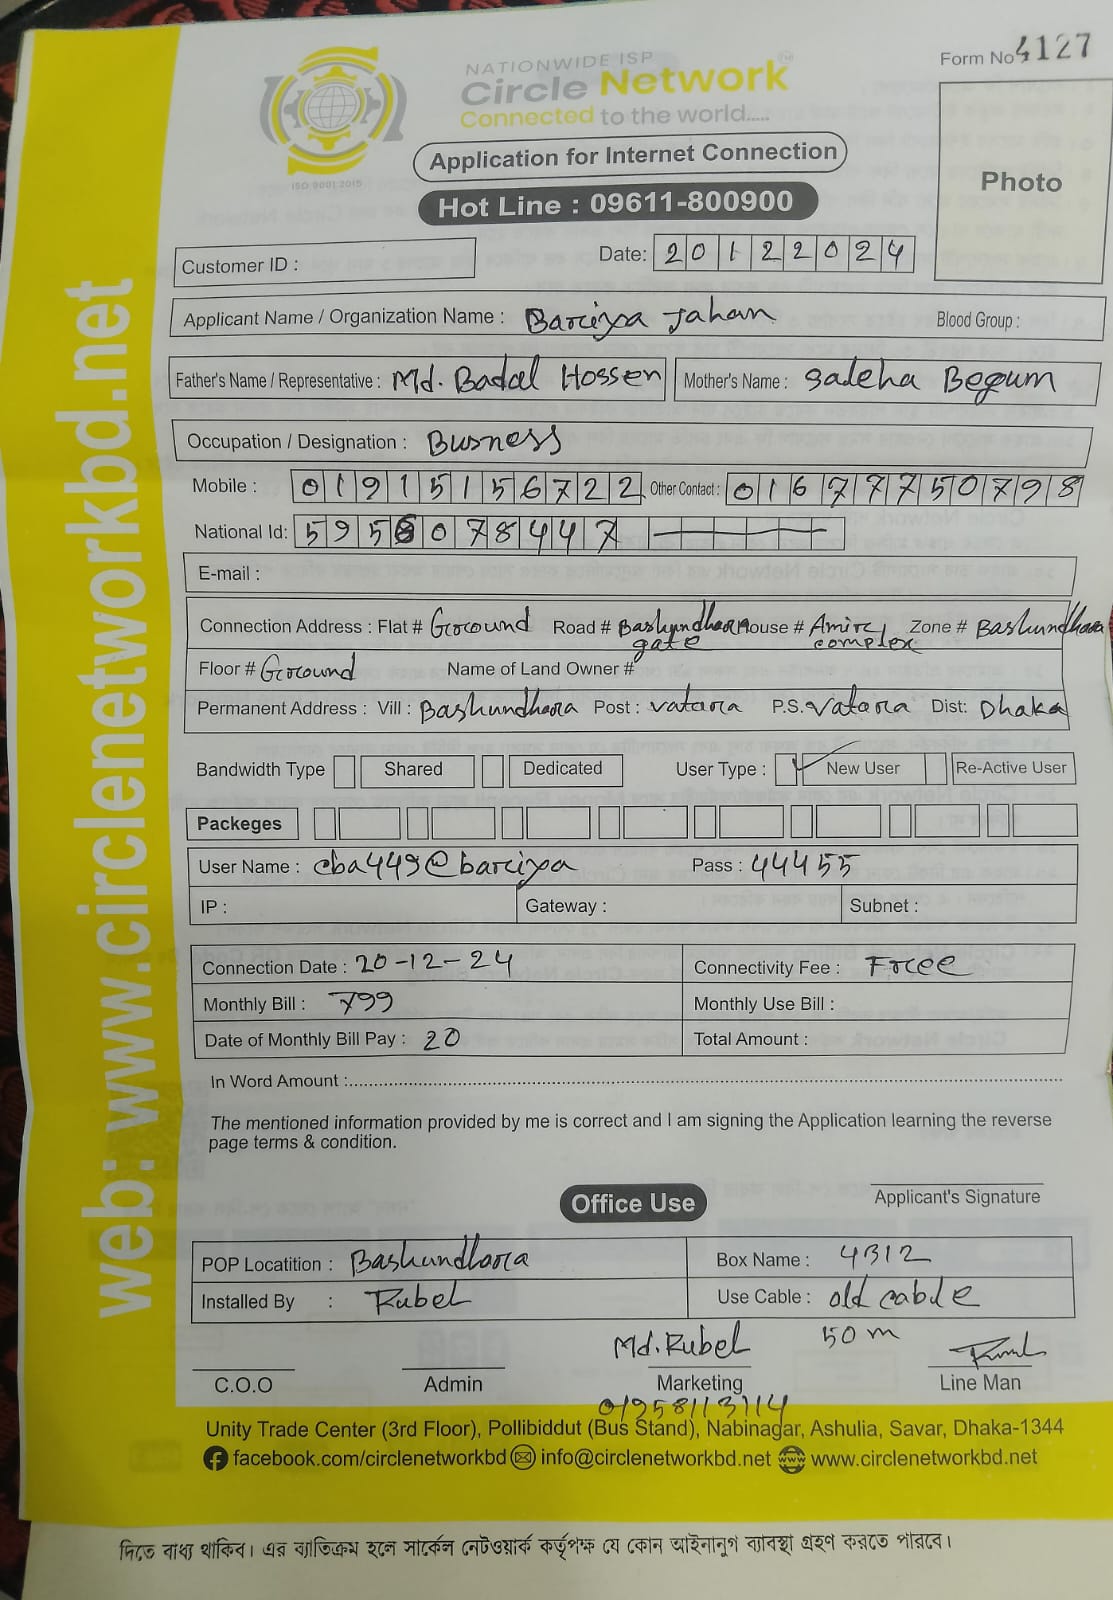 Form No 4127
NATIONWIDE ISP
Circle Network
Connected to the world.....
ISO 9001:2015
Application for Internet Connection
Hot Line : 09611-800900
Photo
Customer ID :
Date: 20122024
Applicant Name / Organization Name : Barciya Jahan Blood Group :
Father's Name / Representative : Md. Badal Hossen Mother's Name : Saleha Begum
Occupation / Designation : Busness
Mobile : 01915156722 Other Contact : 01677750798
National Id: 5958078447
E-mail :
Connection Address : Flat # Ground Road # Bashundhara gate House # Amir complex Zone # Bashundhara
Floor # Ground Name of Land Owner #
Permanent Address : Vill : Bashundhara Post : vatara P.S. Vatara Dist: Dhaka
Bandwidth Type Shared Dedicated User Type : New User Re-Active User
Packeges
User Name : cba449@barciya Pass : 44455
IP : Gateway : Subnet :
Connection Date : 20-12-24 Connectivity Fee : Free
Monthly Bill : 799 Monthly Use Bill :
Date of Monthly Bill Pay : 20 Total Amount :
In Word Amount :
The mentioned information provided by me is correct and I am signing the Application learning the reverse
page terms & condition.
Applicant's Signature
Office Use
POP Locatition : Bashundhara Box Name : 4312
Installed By : Rubel Use Cable : old cable
Md. Rubel 50m
C.O.O Admin Marketing Line Man
01958113114
Unity Trade Center (3rd Floor), Pollibiddut (Bus Stand), Nabinagar, Ashulia, Savar, Dhaka-1344
facebook.com/circlenetworkbd info@circlenetworkbd.net www.circlenetworkbd.net
web: www.circlenetworkbd.net
দিতে বাধ্য থাকিব। এর ব্যতিক্রম হলে সার্কেল নেটওয়ার্ক কর্তৃপক্ষ যে কোন আইনানুগ ব্যাবস্থা গ্রহণ করতে পারবে।